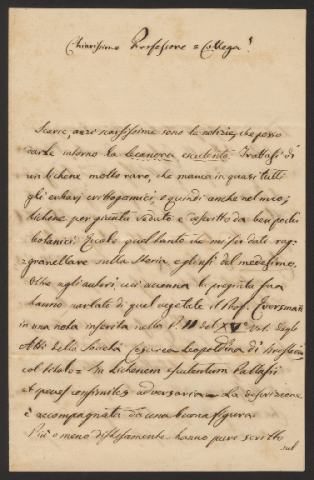 Chiarissimo Professore e Collega!
Scarse, anzi scarsissime sono le notizie, che posso
darle intorno la Lecanora esculenta. Trattasi di
un lichene molto raro, che manca in quasi tutti
gli erbari crittogamici, e quindi anche nel mio;
lichene per giunta veduto e descritto da ben pochi
botanici. Quale quel tanto che mi fu dato rag-
granellare sulla storia e gli usi del medesimo.
Oltre agli autori, cui accenna la pregiata sua
hanno parlato di quel vegetale il Prof. Eversmann
in una nota inserita nella P. II del XV Vol. degli
Atti della Società Cesarea Leopoldina di Breslavia
col titolo = In Lichenem esculentum Pallasii
et species confirmiles adversaria = La descrizione
è accompagnata da una buona figura.
Più o meno distesamente hanno pure scritto
sul